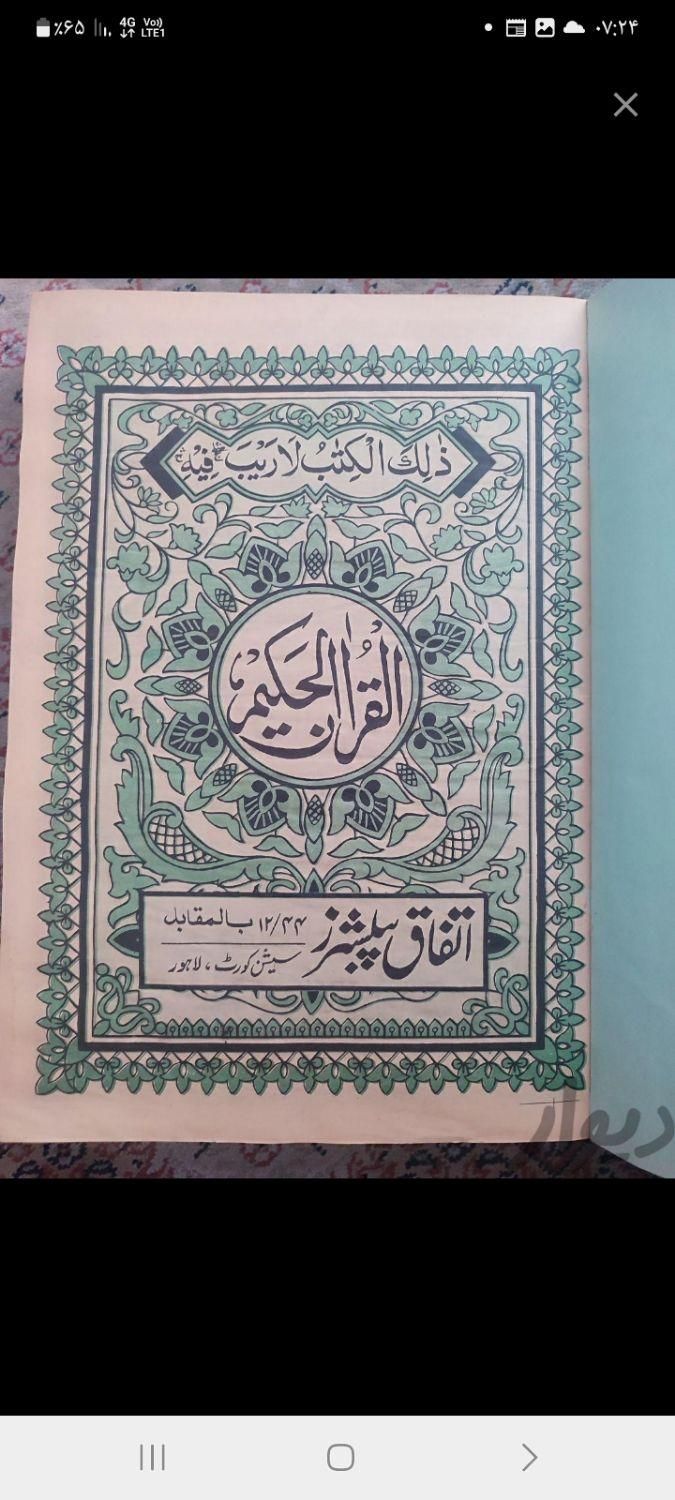 ٪۶۵
4G
Vo))
LTE1
۰۷:۲۴
ذٰلِكَ الْكِتٰبُ لَا رَيْبَ فِيْهِ
الْقُرْاٰنُ الْحَكِيْمُ
اتفاق پبلشرز
۱۲/۴۴ بالمقابل
سیشن کورٹ، لاہور
دیوار